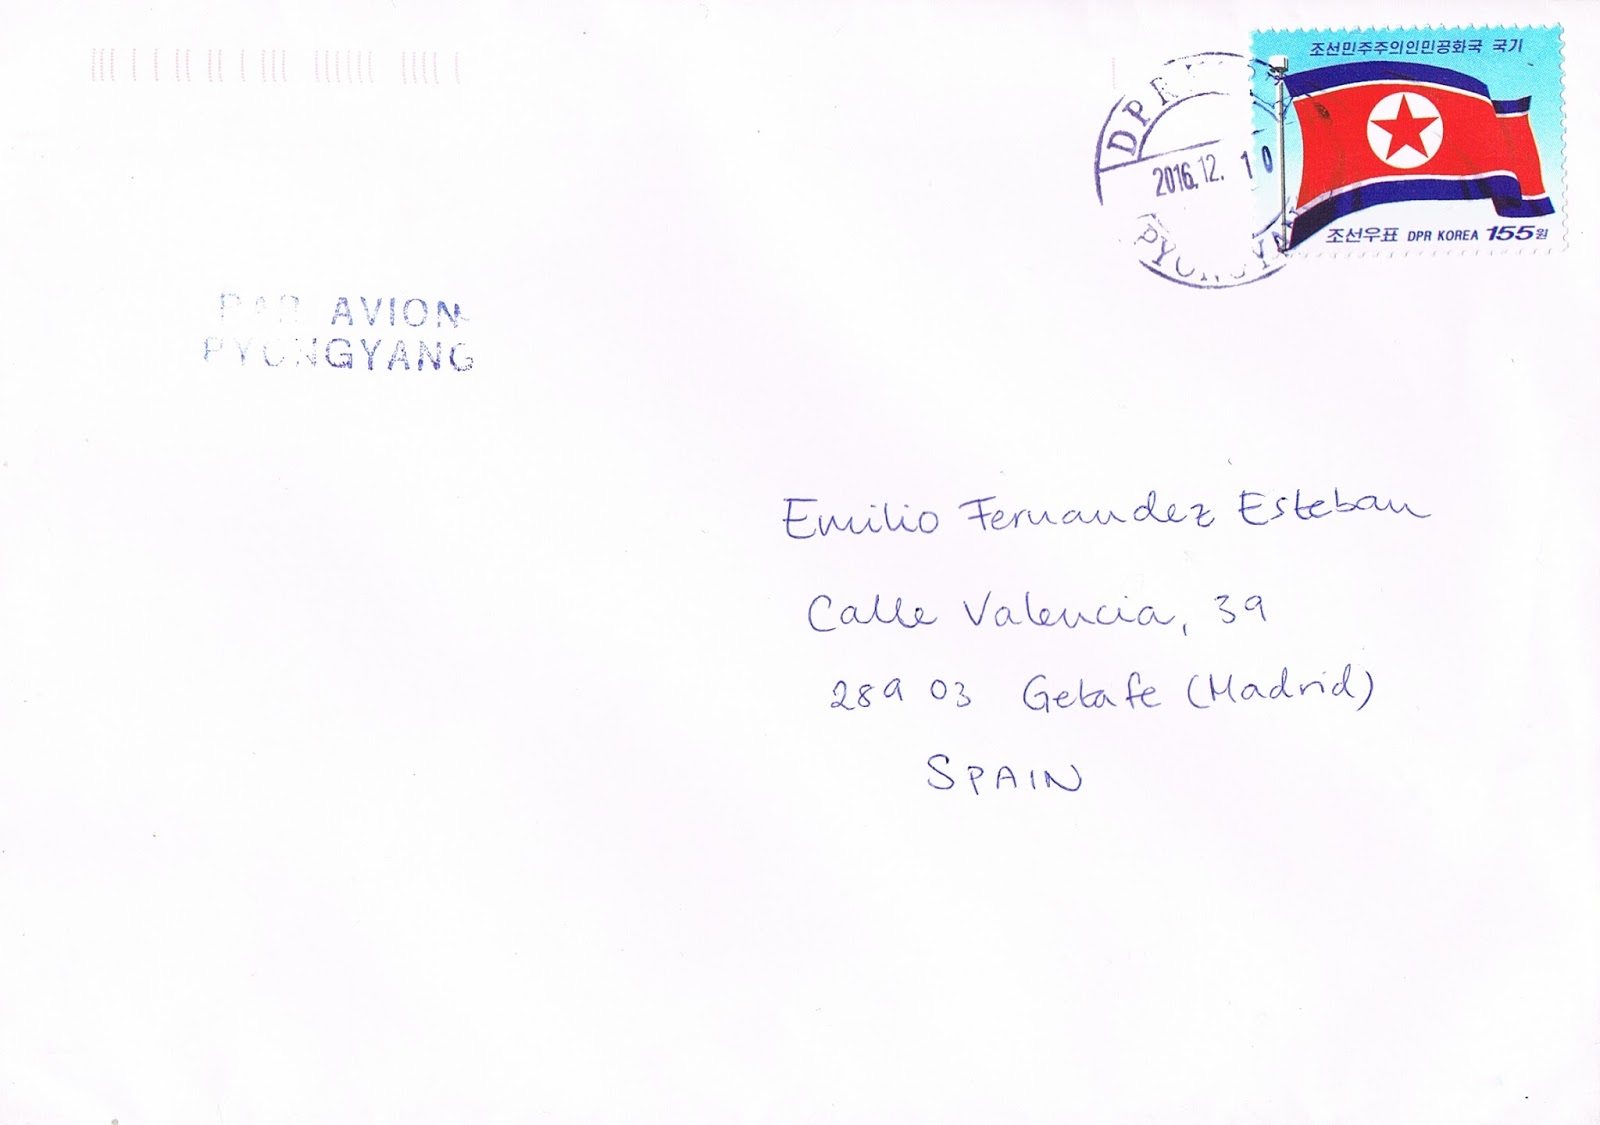 조선민주주의인민공화국 국기
조선우표 DPR KOREA 155원
DPR
2016.12.10
PYONGYAN
PAR AVION
PYONGYANG
Emilio Fernandez Esteban
Calle Valencia, 39
28903 Getafe (Madrid)
SPAIN